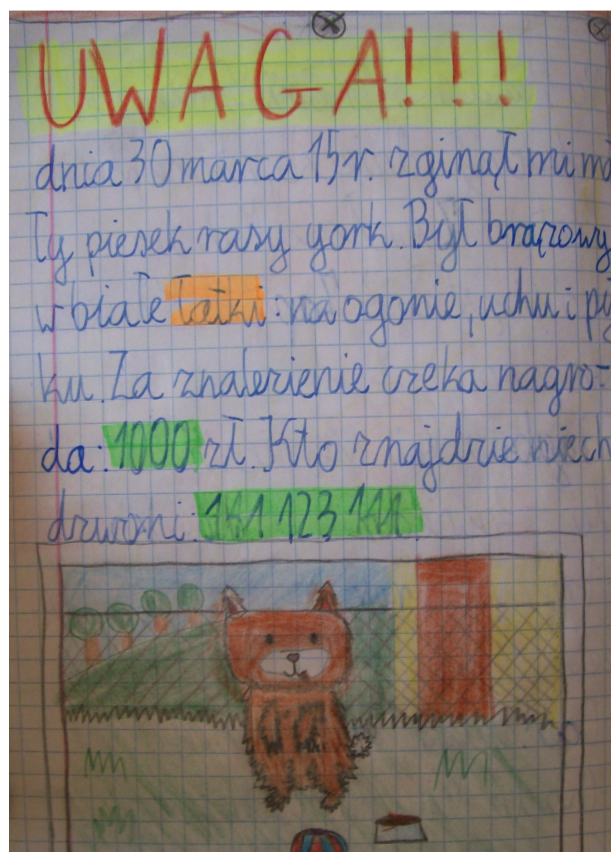 UWAGA!!!
dnia 30 marca 15r. zginął mi ma
ły piesek rasy york. Był brązowy
w białe łatki: na ogonie, uchu i py
ku. Za znalezienie czeka nagro-
da: 1000 zł. Kto znajdzie niech
dzwoni: